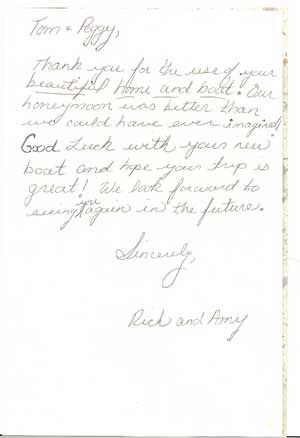 Tom & Peggy,
Thank you for the use of your
beautiful home and boat. Our
honeymoon was better than
we could have ever imagined!
Good Luck with your new
boat and hope your trip is
great! We look forward to
seeing you again in the future.
Sincerely,
Rick and Amy